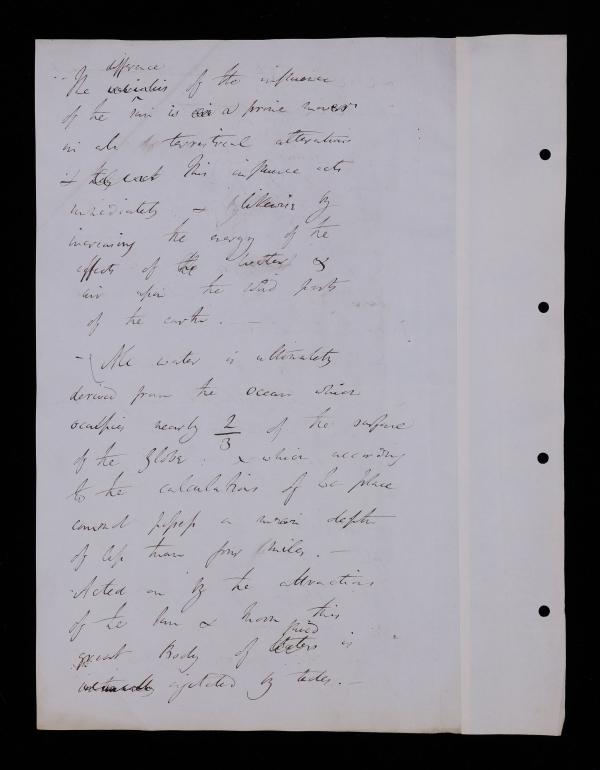 difference
The of the influence
of the sun is a prime mover
in all terrestrial alterations
& this influence acts
immediately & likewise by
increasing the energy of the
effects of the water &
air upon the solid parts
of the earth. —
— The water is ultimately
derived from the ocean which
occupies nearly 2/3 of the surface
of the globe: & which according
to the calculations of La place
cannot possess a mean depth
of less than four miles. —
Acted on by the attractions
of the sun & moon this
fluid
great Body of is
agitated by tides. —